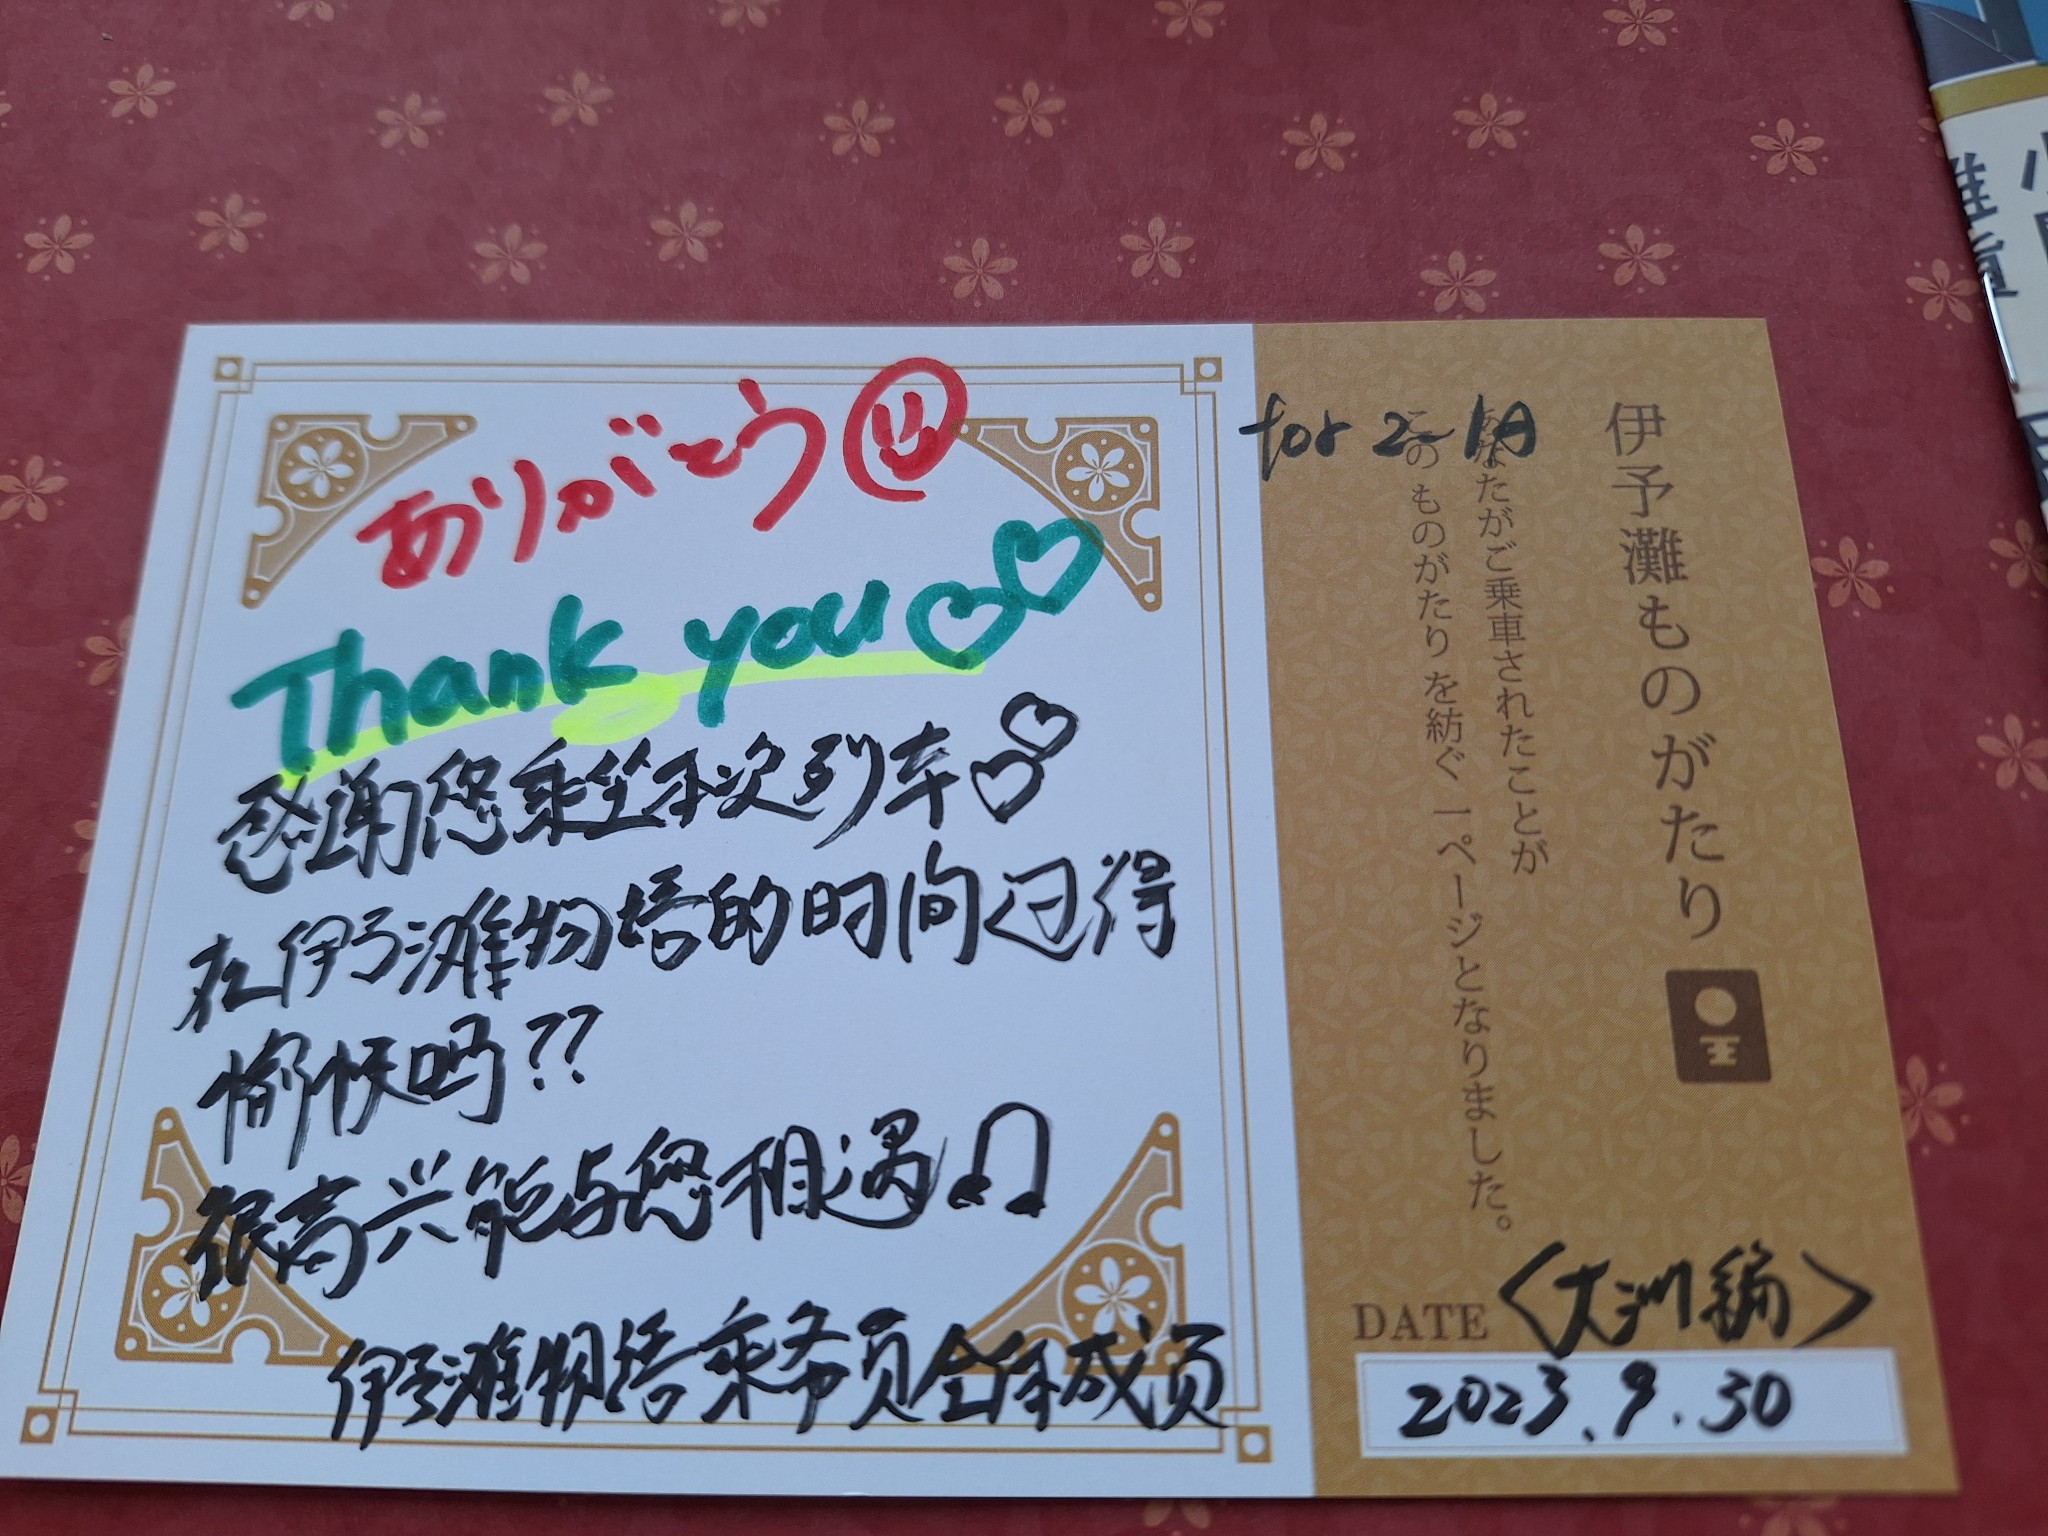 ありがとう
Thank you
感谢您乘坐本次列车
在伊予滩物语的时间过得
愉快吗??
很高兴能与您相遇
伊予滩物语乘务员全体成员
for 2-1A
伊予灘ものがたり
あなたがご乗車されたことが
このものがたりを紡ぐ一ページとなりました。
DATE
<大洲編>
2023.9.30